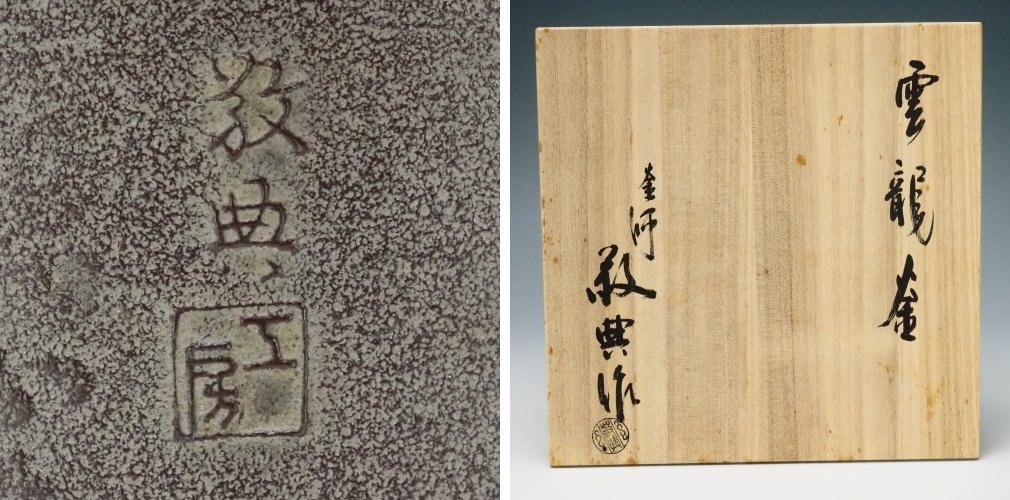 敬典
工房
雲龍釜
釜師
敬典作